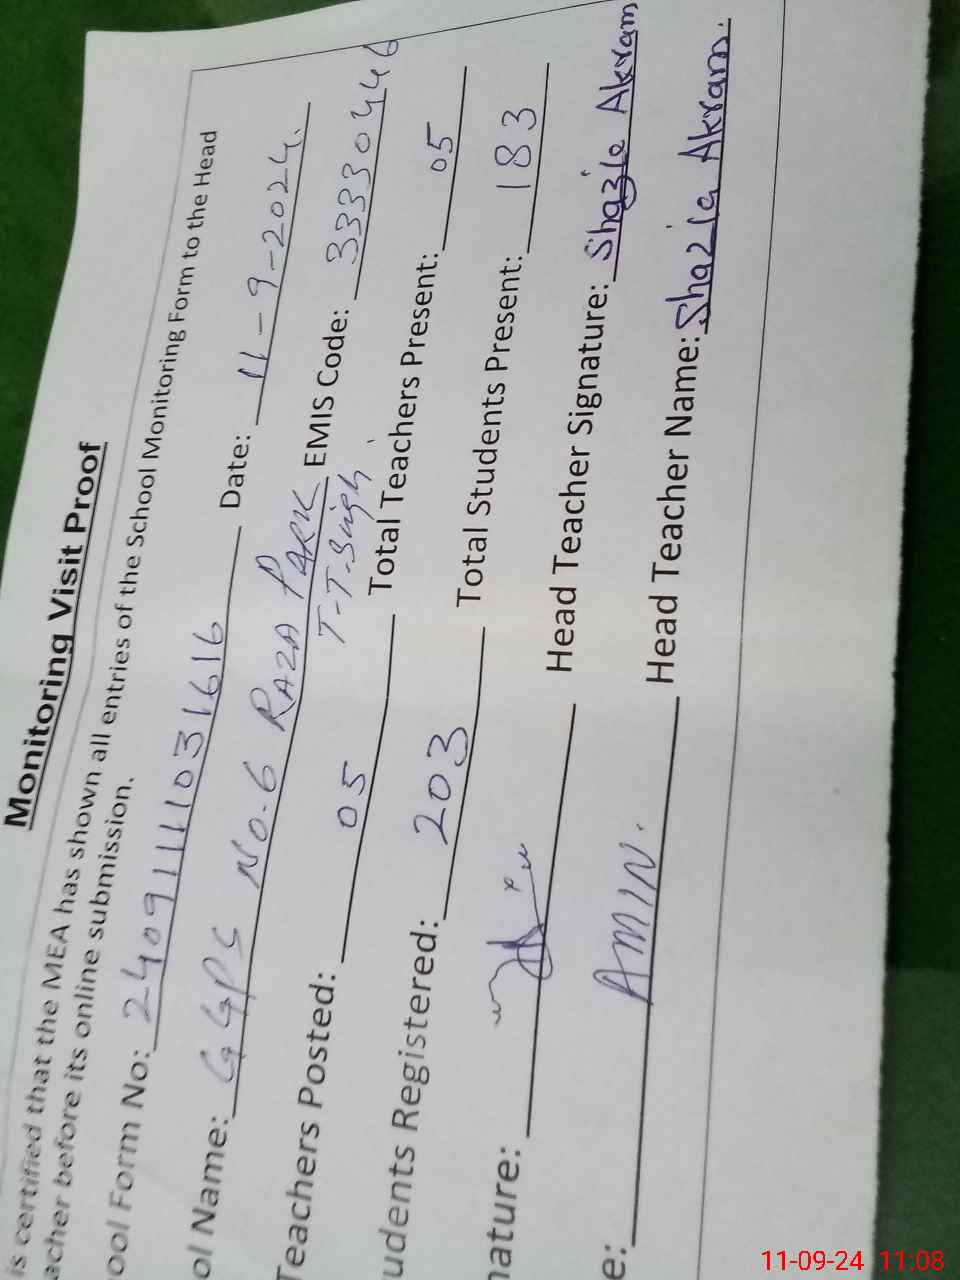 Monitoring Visit Proof
is certified that the MEA has shown all entries of the School Monitoring Form to the Head
acher before its online submission.
ool Form No: 24091111031616 Date: 11-9-2024.
ol Name: GGPS No.6 RAZA PARK EMIS Code: 33330446
T-T-Singh
Teachers Posted: 05 Total Teachers Present: 05
udents Registered: 203 Total Students Present: 183
nature: Head Teacher Signature: Shazia Akram
e: AMIN. Head Teacher Name: Shazia Akram.
11-09-24 11:08